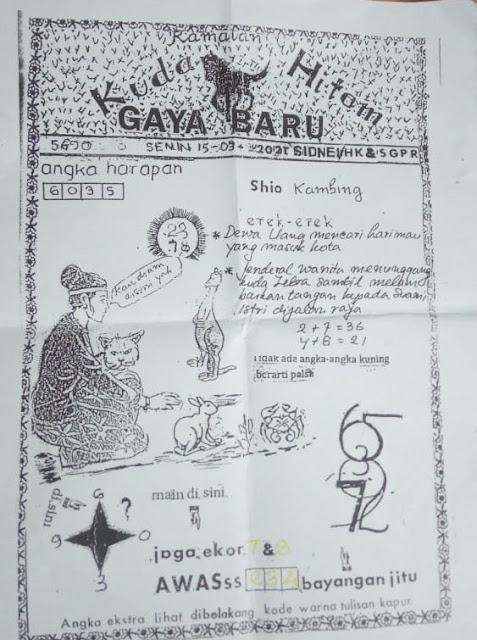 Kamalan
Kuda Hitam
GAYA BARU
SENIN 15-03-2021 SIDNEY/HK & SGPR
angka harapan
6035
Shio Kambing
23
78
erek-erek
* Dewa Uang mencari harimau
yang masuk kota
Kau diam
disini yah
* Jenderal wanita menunggang
kuda Zebra sambil melam
baikan tangan kepada suami
istri dijalan raya
2+7=36
4+8=21
Tidak ada angka-angka kuning
berarti palsu
6 5
7 2
main di sini.
di sini
6
?
9 0
3
jaga ekor 7 & 8
AWASss 034 bayangan jitu
Angka ekstra lihat dibelakang kode warna tulisan kapur.